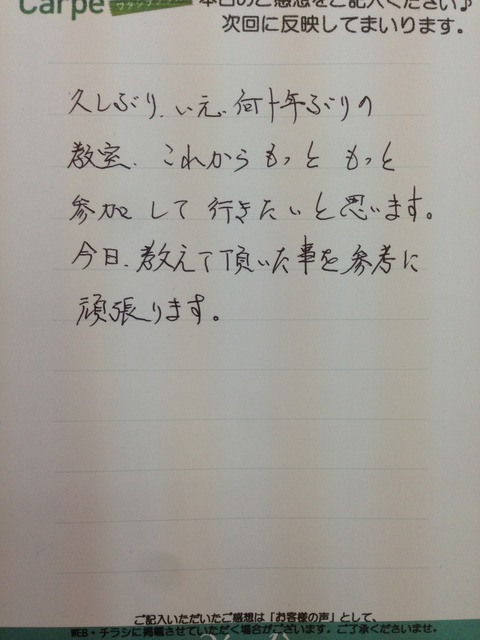 Carpe
本日のご感想をご記入ください♪
次回に反映してまいります。
久しぶり、いえ、何十年ぶりの
教室、これから もっと もっと
参加 して 行きたいと思います。
今日、教えて頂いた事を参考に
頑張ります。
ご記入いただいたご感想は「お客様の声」として、
WEB・チラシに掲載させていただく場合がございます。ご了承くださいませ。